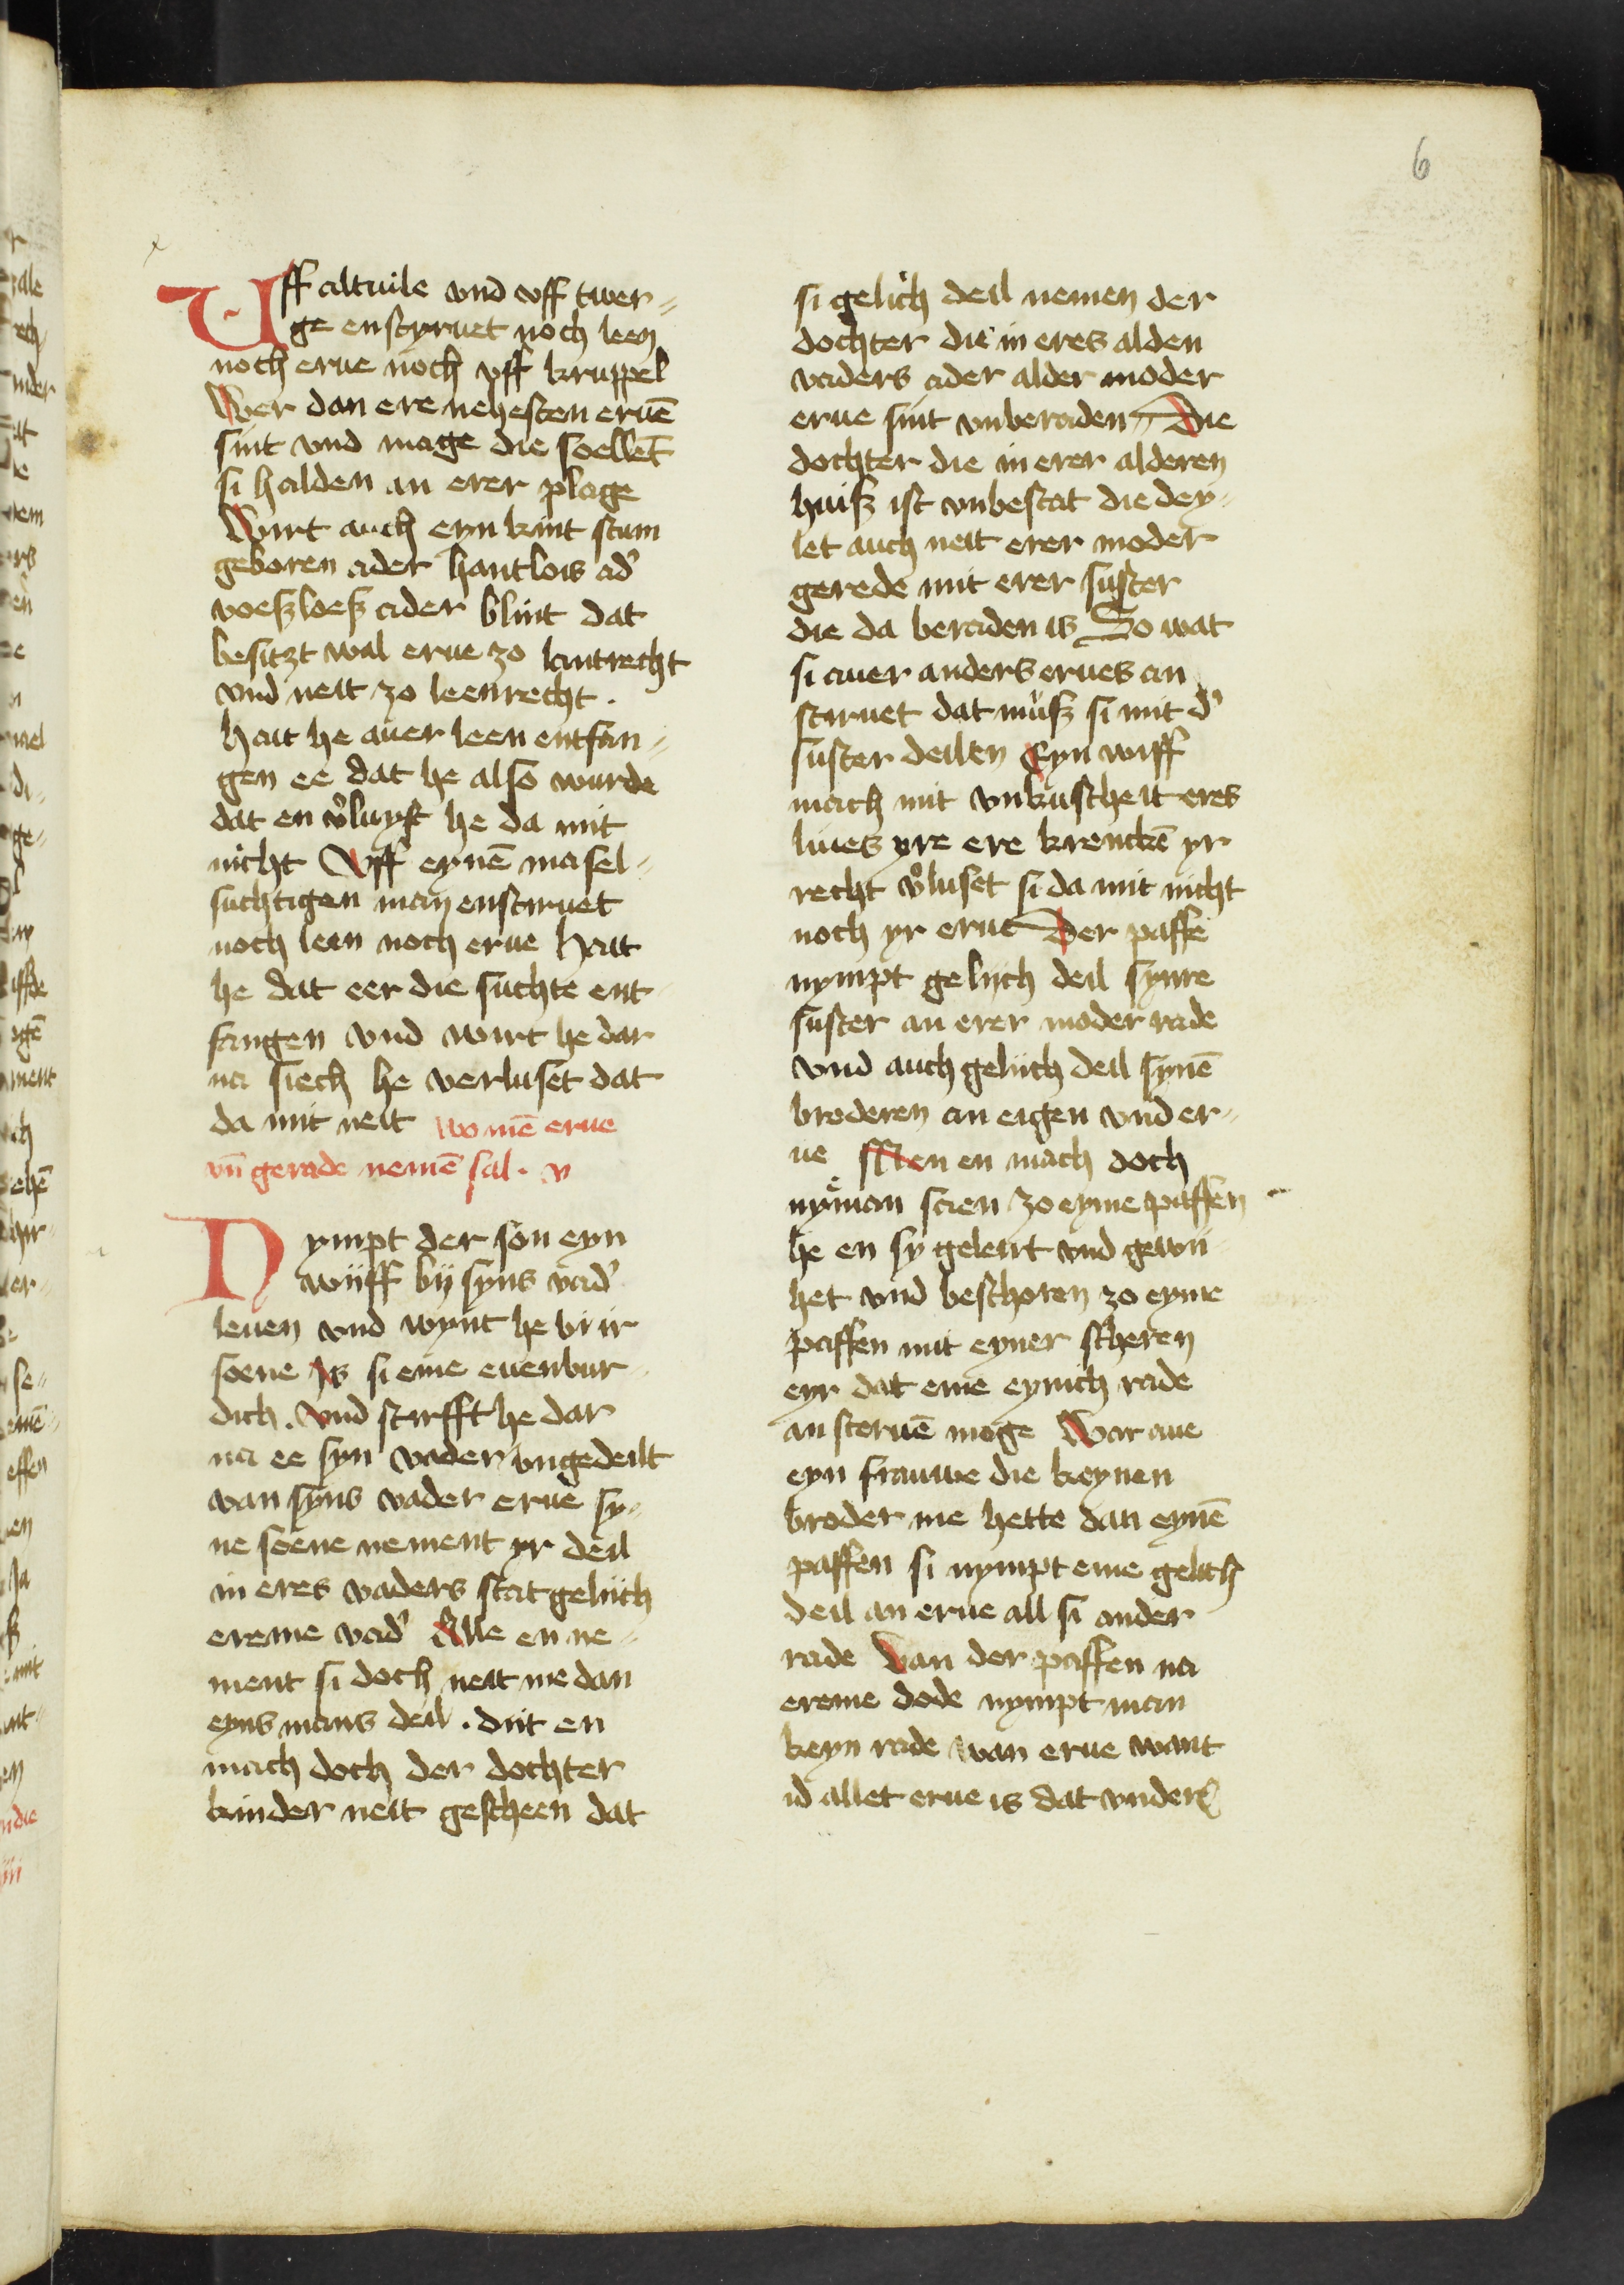 6
Uff altuile vnd vff twer-
ge enstyruet noch leen
noch erue noch vff kruppel
Wer dan ere nehesten eruē
sint vnd mage die soellēt
si halden an erer plage
Wirt auch eyn kint stum
geboren ader hantlois ad'
voeßloeß ader blint dat
besitzt wal erue zo lantrecht
vnd neit zo leenrecht .
hait he auer leen entfan-
gen ee dat he also wurde
dat en v'luyst he da mit
nicht Vff eynē masel-
suchtigen man enstiruet
noch leen noch erue Hait
he dat eer die suchte ent
fangen vnd wirt he dar
na siech he verluset dat
da mit neit wo mē erue
vn̄ gerade nemē sal . v
Nympt der son eyn
wijff bij syns vad'
leuen vnd wynt he bi ir
soene Is si eme euenbur
dich . Vnd stirfft he dar
na ee syn vader vngedeilt
van syns vader erue sy-
ne soene nement yr deil
in eres vaders stat gelijch
ereme vad' Alle en ne-
ment si doch neit me dan
eyns mans deil . dit en
mach doch der dochter
kinder neit gescheen dat
si gelich deil nemen der
dochter die in eres alden
vaders ader alder moder
erue sint vnberaden Die
dochter die in erer alderen
huiß ist vnbestat die dey-
let auch neit erer moder
gerede mit erer suster
die da beraden is So wat
si auer anders erues an
stiruet dat muß si mit d'
suster deilen Eyn wiff
mach mit vnkuscheit eres
liues yre ere krenckē yr
recht v'luset si da mit nicht
noch yr erue Der paffe
nympt gelijch deil synre
suster an erer moder rade
vnd auch gelijch deil synē
broderen an eigen vnd er-
ue Men en mach doch
nyeman scien zo eyme paffen
he en sy geleirt vnd gewi
het vnd beschoren zo eyme
paffen mit eyner scheren
eyr dat eme eynich rade
an steruē moge War aue
eyn frauwe die keynen
broder me hette dan eynē
paffen si nympt eme gelich
deil an erue all si ander
rade Van der paffen na
ereme dode nympt man
keyn rade wan erue want
id allet erue is dat vnder